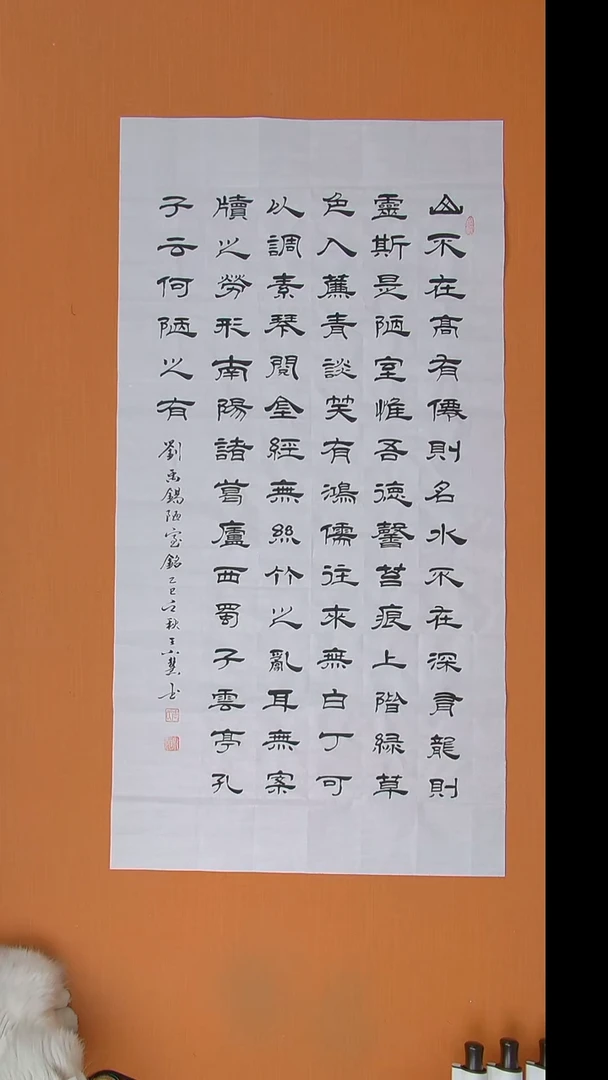 山不在高有僊則名水不在深有龍則
靈斯是陋室惟吾德馨苔痕上階緑草
色入薕青談笑有鴻儒往來無白丁可
以調素琴閱金經無絲竹之亂耳無案
牘之勞形南陽諸葛廬西蜀子雲亭孔
子云何陋之有
劉禹錫陋室銘乙巳之秋王书